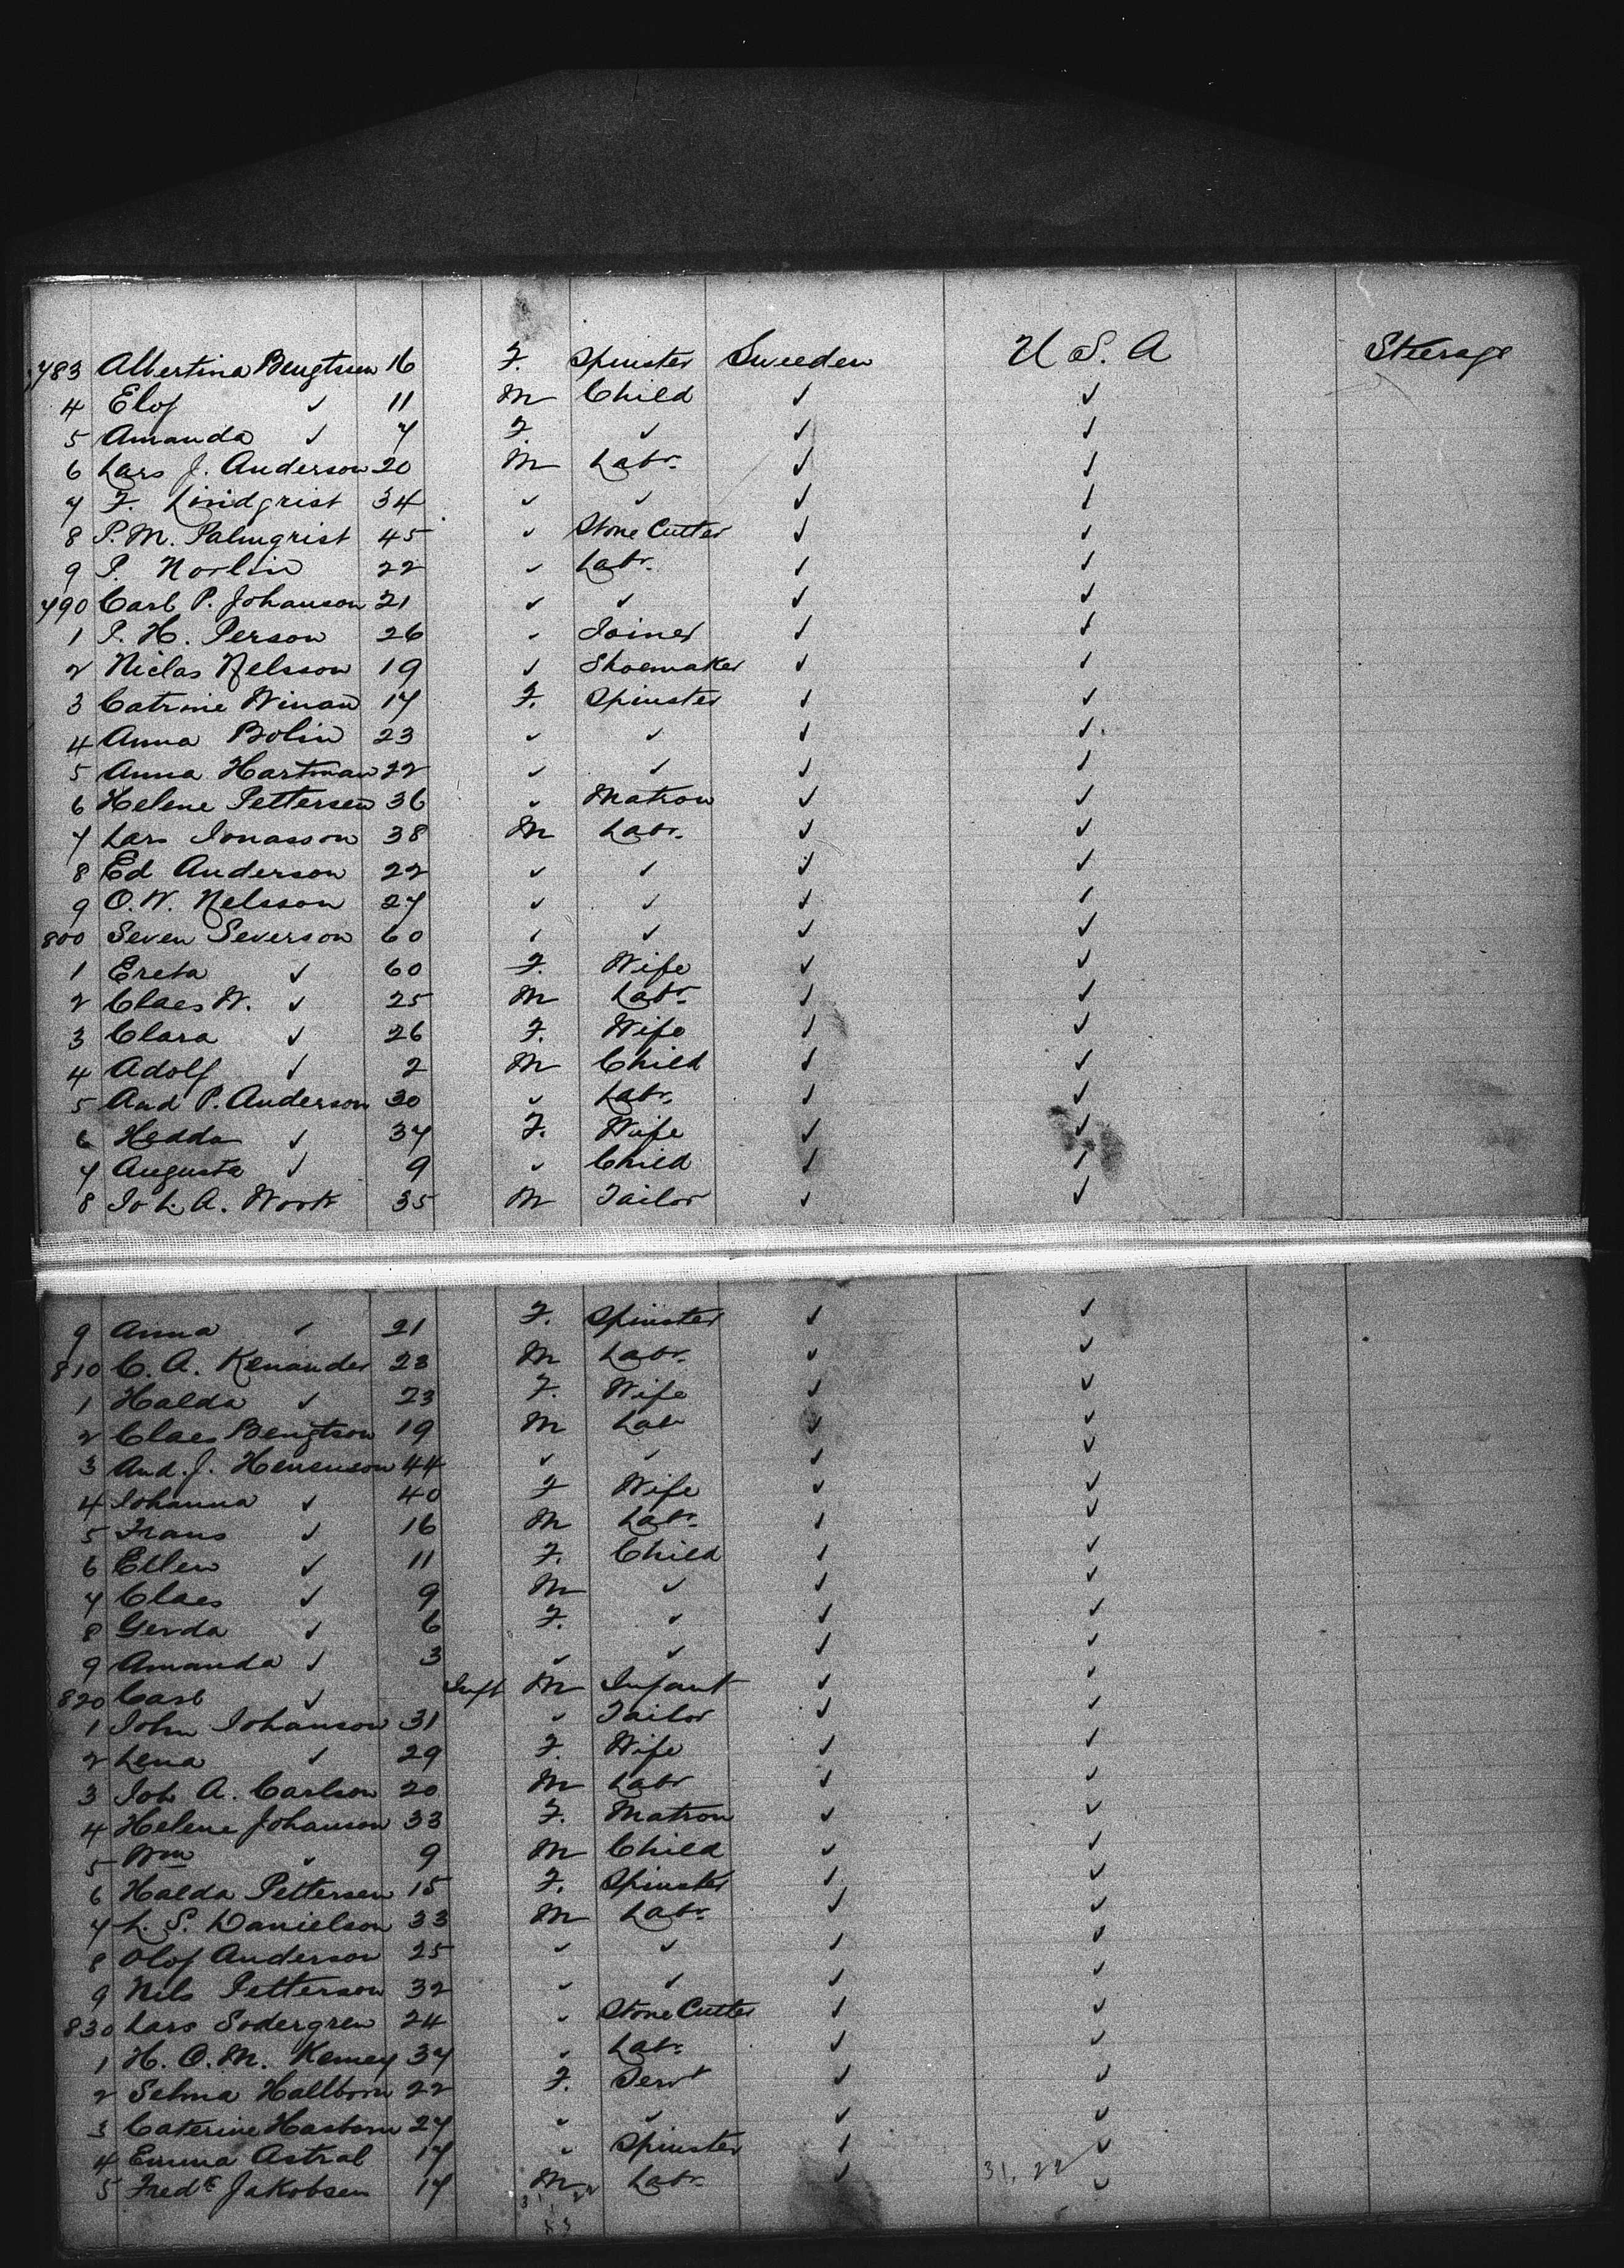 783 Albertina Bengtsen 16 F. Spinster Sweeden U S. A Steerage
4 Elof ✓ 11 M Child ✓ ✓
5 Amanda ✓ 7 F. ✓ ✓ ✓
6 Lars J. Anderson 20 M Labr. ✓ ✓
7 F. Lindgrist 34 ✓ ✓ ✓ ✓
8 P. M. Palmgrist 45 ✓ Stone Cutter ✓ ✓
9 P. Norlin 22 ✓ Labr. ✓ ✓
790 Carl P. Johanson 21 ✓ ✓ ✓ ✓
1 P. H. Person 26 ✓ Joiner ✓ ✓
2 Niclas Nelsson 19 ✓ Shoemaker ✓ ✓
3 Catrine Winan 17 F. Spinster ✓ ✓
4 Anna Bolin 23 ✓ ✓ ✓ ✓
5 Anna Hartman 22 ✓ ✓ ✓ ✓
6 Helene Pettersen 36 ✓ Matron ✓ ✓
7 Lars Jonasson 38 M Labr. ✓ ✓
8 Ed Anderson 22 ✓ ✓ ✓ ✓
9 O. W. Nelsson 27 ✓ ✓ ✓ ✓
800 Seven Severson 60 ✓ ✓ ✓ ✓
1 Ereta ✓ 60 F. Wife ✓ ✓
2 Claes W. ✓ 25 M Labr. ✓ ✓
3 Clara ✓ 26 F. Wife ✓ ✓
4 Adolf ✓ 2 M Child ✓ ✓
5 And P. Anderson 30 ✓ Labr. ✓ ✓
6 Hedda ✓ 37 F. Wife ✓ ✓
7 Augusta ✓ 9 ✓ Child ✓ ✓
8 Joh. A. Work 35 M Tailor ✓ ✓
9 Anna ✓ 21 F. Spinster ✓ ✓
810 C. A. Kenander 23 M Labr. ✓ ✓
1 Halda ✓ 23 F. Wife ✓ ✓
2 Claes Bengtson 19 M Labr ✓ ✓
3 And. J. Henenson 44 ✓ ✓ ✓ ✓
4 Johanna ✓ 40 F Wife ✓ ✓
5 Frans ✓ 16 M Labr. ✓ ✓
6 Ellen ✓ 11 F. Child ✓ ✓
7 Claes ✓ 9 M ✓ ✓ ✓
8 Gerda ✓ 6 F. ✓ ✓ ✓
9 Amanda ✓ 3 ✓ ✓ ✓ ✓
820 Carl ✓ Inft M Infant ✓ ✓
1 John Johanson 31 ✓ Tailor ✓ ✓
2 Lena ✓ 29 F. Wife ✓ ✓
3 Joh A. Carlson 20 M Labr ✓ ✓
4 Helene Johanson 33 F. Matron ✓ ✓
5 Wm ✓ 9 M Child ✓ ✓
6 Halda Pettersen 15 F. Spinster ✓ ✓
7 L. S. Danielson 33 M Labr. ✓ ✓
8 Olof Anderson 25 ✓ ✓ ✓ ✓
9 Nils Petterson 32 ✓ ✓ ✓ ✓
830 Lars Sodergren 24 ✓ Stone Cutter ✓ ✓
1 H. O. M. Kemey 37 ✓ Labr. ✓ ✓
2 Selma Hallborn 22 F. Servt ✓ ✓
3 Caterine Hasborn 27 ✓ ✓ ✓ ✓
4 Emma Astral 17 ✓ Spinster ✓ ✓
5 Fredk Jakobsen 17 M Labr. ✓ 31. 22 ✓